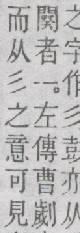 之字作彡彭亦从
闕者一。左傳曹劌
而从彡之意可見